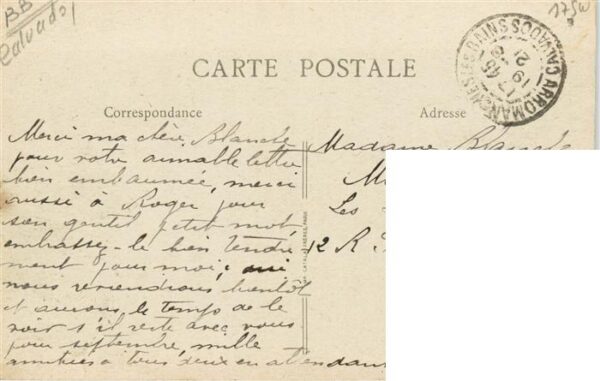 BB
Calvados
1750
CARTE POSTALE
ARROMANCHES-LES-BAINS
CALVADOS
17 45
19 8
21
Correspondance
Adresse
Merci ma chère Blanche
pour votre aimable lettre
bien embaumée, merci
aussi à Roger pour
son gentil petit mot,
embrassez-le bien tendre
ment pour moi,
nous reviendrons bientôt
et aurons le temps de le
voir s'il reste avec vous
pour septembre, mille
amitiés à tous deux en attendant
Madame Blanche
M
Les
12 R